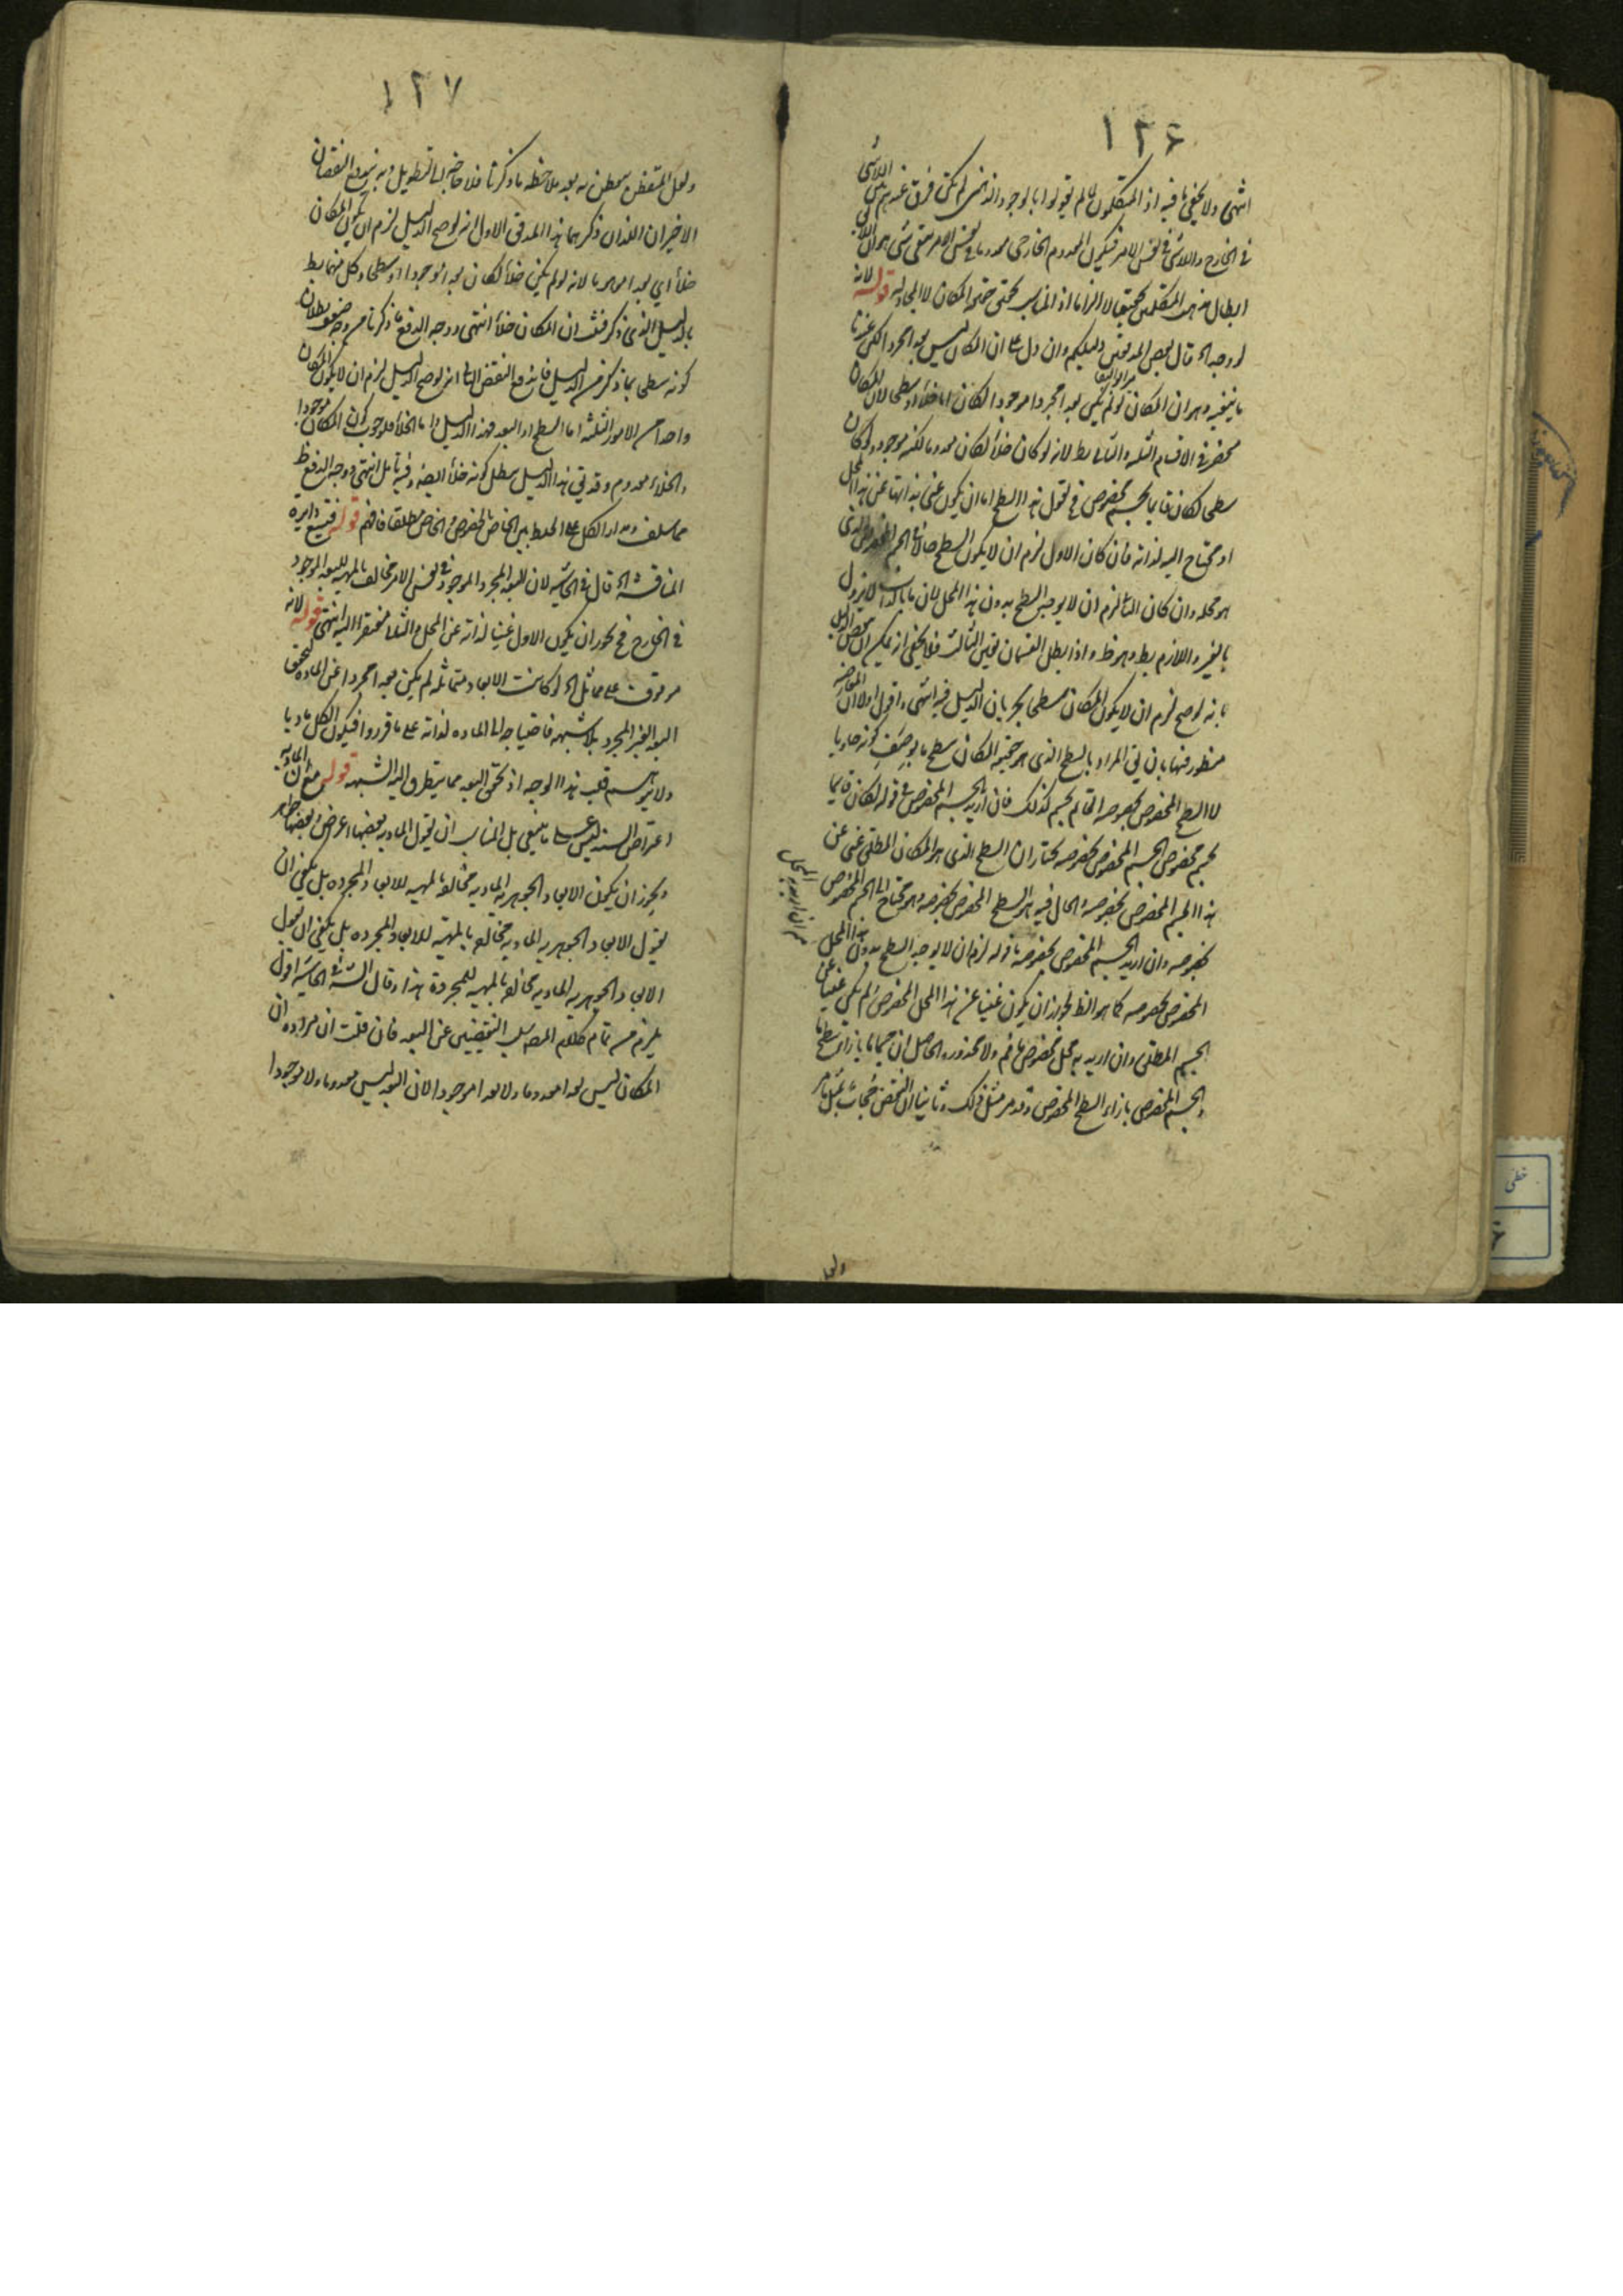 ١٢٦
انتهى ولا يخفى ما فيه اذ المتكلمون لما لم يقولوا بالوجود الذهنى لم يكن فرق عندهم بين اللاشى
فى الخارج واللاشى فى نفس الامر فيكون المعدوم الخارجى معدوما فى نفس الامر
ابطال مذهب المتكلمين تحقيقا لا الزاما اذ المناسب تحقيق حقيقة المكان لا المجادلة قوله لانه
لو وجد الخ قال بعض المدققين دليلكم وان دل على ان المكان ليس بعدا مجردا لكن عندنا
ما ينفيه وهو ان المكان لو لم يكن بعدا مجردا موجودا لكان اما خلأ او سطحا لان المكان
منحصر فى الاقسام الثلثة والتالى بط لانه لو كان خلأ لكان معدوما لكنه موجود ولو كان
سطحا لكان قايما بجسم مخصوص فنقول هذا السطح اما ان يكون غنى بذاتها عن هذا المحل
او محتاج اليه لذاته فان كان الاول لزم ان لا يكون السطح حالا فى الجسم المخصوص الذى
هو محله وان كان الثانى لزم ان لا يوجد السطح بدون هذا المحل لان ما بالذات لا يزول
بالغير واللازم بط وهو ظ واذا بطل القسمان تعين الثالث فلا يخفى
بانه لو صح لزم ان لا يكون المكان سطحا بجريان الدليل فيه انتهى واقول اولا ان المعارضة
منظور فيها بان يقال المراد بالسطح الذى هو حقيقة المكان سطح ما بوصف كونه حاويا
لا السطح المخصوص بخصوصه القائم بجسم كذلك فان اريد بالجسم المخصوص فى قوله لكان قايما
بجسم مخصوص الجسم المخصوص بخصوصه نختار ان السطح الذى هو المكان المطلق غنى عن
هذا الجسم المخصوص بخصوصه والحال فيه هو السطح المخصوص بخصوصه وهو محتاج الى الجسم المخصوص
بخصوصه وان اريد الجسم المخصوص بخصوصه فقوله لزم ان لا يوجد السطح بدون هذا المحل
المخصوص بخصوصه كما هو الظ لجواز ان يكون غنيا عن هذا المحل المخصوص ولم يكن غنيا عن
الجسم المطلق وان اريد به محل مخصوص ما فم ولا محذور والحاصل ان جسما ما بازاء سطح ما
والجسم المخصوص بازاء السطح المخصوص وقد مر مثل ذلك وثانيا ان النقض مجاب بمثل ما مر
ولعل
١٢٧
ولعل المتفطن يتفطن به بعد ملاحظة ما ذكرنا فلا حاجة الى التطويل وبه يندفع النقضان
الاخيران اللذان ذكرهما هذا المدقق الاول انه لو صح الدليل لزم ان يكون المكان
خلأ اى بعدا موهوما لانه لو لم يكن خلأ لكان بعدا موجودا او سطحا وكل منهما بط
بالدليل الذى ذكر فثبت ان المكان خلأ انتهى ووجه الدفع ما ذكرنا من وجه ضعف بطلان
كونه سطحا بما ذكر من الدليل فاندفع النقض الثانى انه لو صح الدليل لزم ان لا يكون المكان
واحدا من الامور الثلثة اما السطح او البعد فبهذا الدليل واما الخلأ فلوجوب كون المكان موجودا
والخلاء معدوم وقد يقال هذا الدليل يبطل كونه خلأ ايضا وفيه تأمل انتهى ووجه الدفع ظ
مما سلف ومدار الكل على الخلط بين الخاص المخصوص والخاص مطلقا فافهم قوله فتتسع دايرة
المناقشة الخ قال فى الحاشية لان البعد المجرد الموجود فى نفس الامر مخالف بالمهية للبعد الموجود
فى الخارج فح يجوز ان يكون الاول غنيا لذاته عن المحل والثانى مفتقرا اليه انتهى قوله لانه
موقوف على تماثل الخ لو كانت الابعاد متماثلة لم يكن بعدا مجردا عن المادة لتحقق
البعد الغير المجرد بلا شبهة فاحتياجه الى المادة لذاته على ما قرروا فيكون الكل ماديا
ولا يتوهم قلب هذا الوجه اذ تحقق البعد مما يتطرق اليه الشبهة قوله مع ان المادية
اعتراض السند ليس على ما ينبغى بل المناسب ان يقول المادية بعضها اعراض وبعضها جواهر
ويجوز ان يكون الابعاد الجوهرية المادية مخالفة بالمهية للابعاد المجردة بل يكفى ان
يقول الابعاد الجوهرية المادية مخالفة بالمهية للابعاد المجردة بل يكفى ان يقول
الابعاد الجوهرية المادية مخالفة بالمهية للمجردة هذا وقال الش فى الحاشية اقول
يلزم من تمام كلام المصـ سلب النقيضين عن البعد فان قلت ان مراده ان
المكان ليس بعدا معدوما ولا بعدا موجودا لان البعد ليس معدوما ولا موجودا
خطى